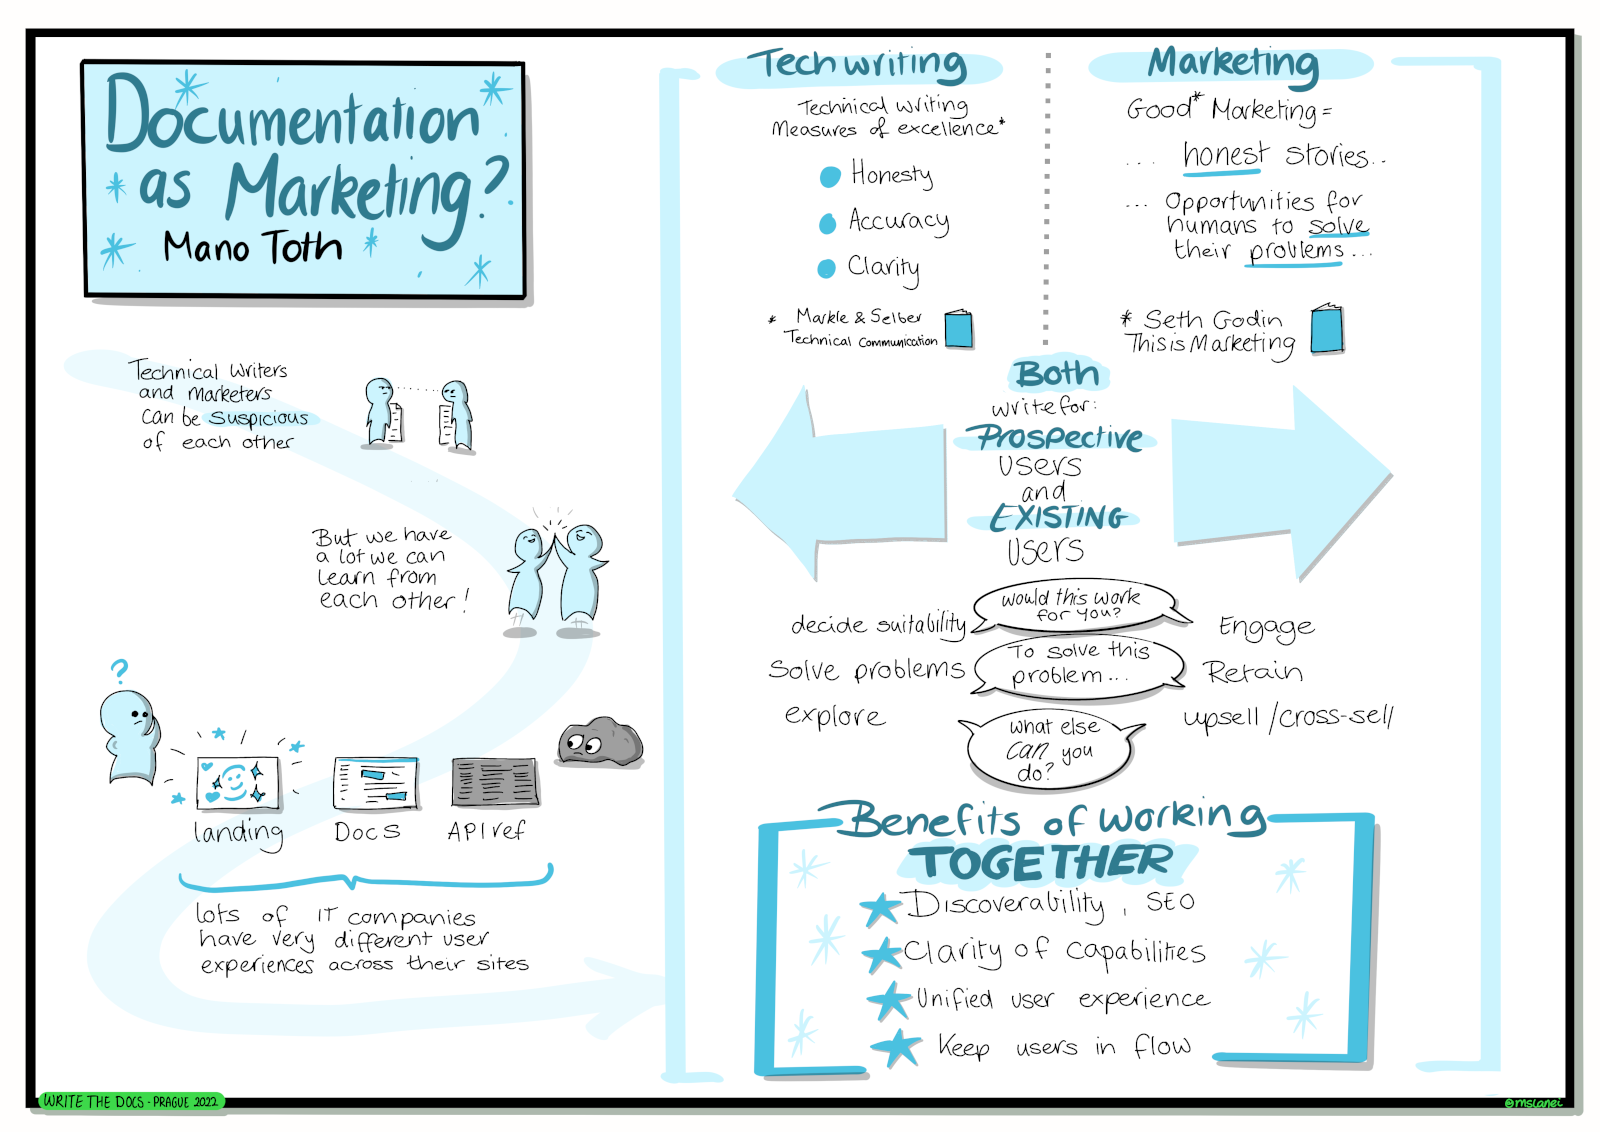 Documentation
as Marketing?
Mano Toth
Technical Writers
and Marketers
can be suspicious
of each other
But we have
a lot we can
learn from
each other!
?
landing
Docs
API ref
lots of IT companies
have very different user
experiences across their sites
Tech writing
Technical writing
Measures of excellence*
Honesty
Accuracy
Clarity
* Markle & Selber
Technical Communication
Marketing
Good* Marketing =
... honest stories...
... Opportunities for
humans to solve
their problems...
* Seth Godin
This is Marketing
Both
write for:
Prospective
users
and
EXISTING
users
decide suitability
would this work
for you?
Engage
Solve problems
To solve this
problem...
Retain
explore
what else
can you
do?
upsell/cross-sell
Benefits of working
TOGETHER
Discoverability, SEO
Clarity of capabilities
Unified user experience
Keep users in flow
WRITE THE DOCS - PRAGUE 2022
@mslanei